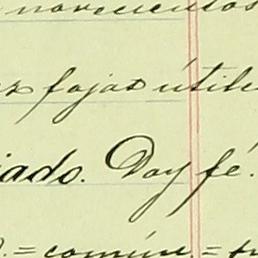 novecientos
fojas útile
iado. Doy fé.
= común. =